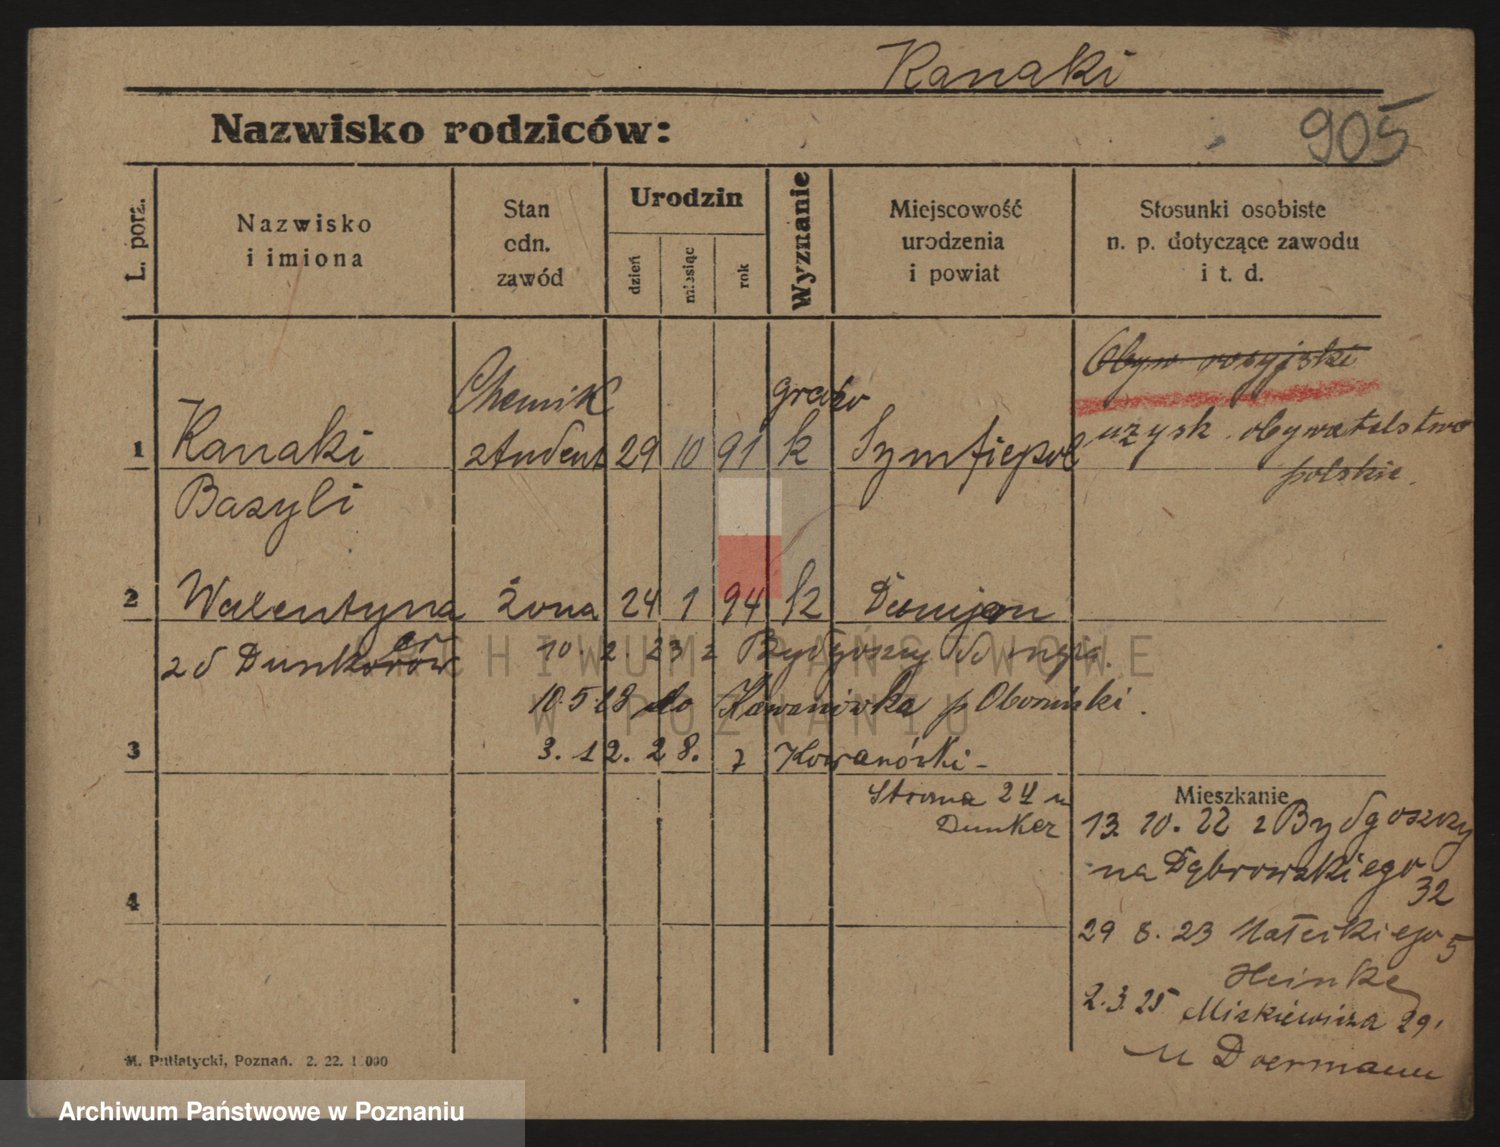 Kanaki
Nazwisko rodziców:
905
L. porz.
Nazwisko
i imiona
Stan
odn.
zawód
Urodzin
dzień
miesiąc
rok
Wyznanie
Miejscowość
urodzenia
i powiat
Stosunki osobiste
n. p. dotyczące zawodu
i t. d.
Obyw rosyjski
1 Kanaki
Basyli
Chemik
student
29 10 91
grecko
k
Symfiepol
uzysk. obywatelstwo
polskie.
2 Walentyna
zd Dunkerów
żona 24 1 94 k
10. 2. 23 z Bydgoszczy
10.5.28 do Kowanówka p Obornicki.
3
3. 12. 28. z Kowanówki -
Strona 24 u
Dunker
Mieszkanie
13. 10. 22 z Bydgoszczy
na Dąbrowskiego
32
4
29 8. 23 Małeckiego 5
Heinke
2.3.25 Mickiewicza 29.
u Doermann
M. Putiatycki, Poznań. 2. 22. 1 000
ARCHIWUM PAŃSTWOWE
W POZNANIU
Archiwum Państwowe w Poznaniu